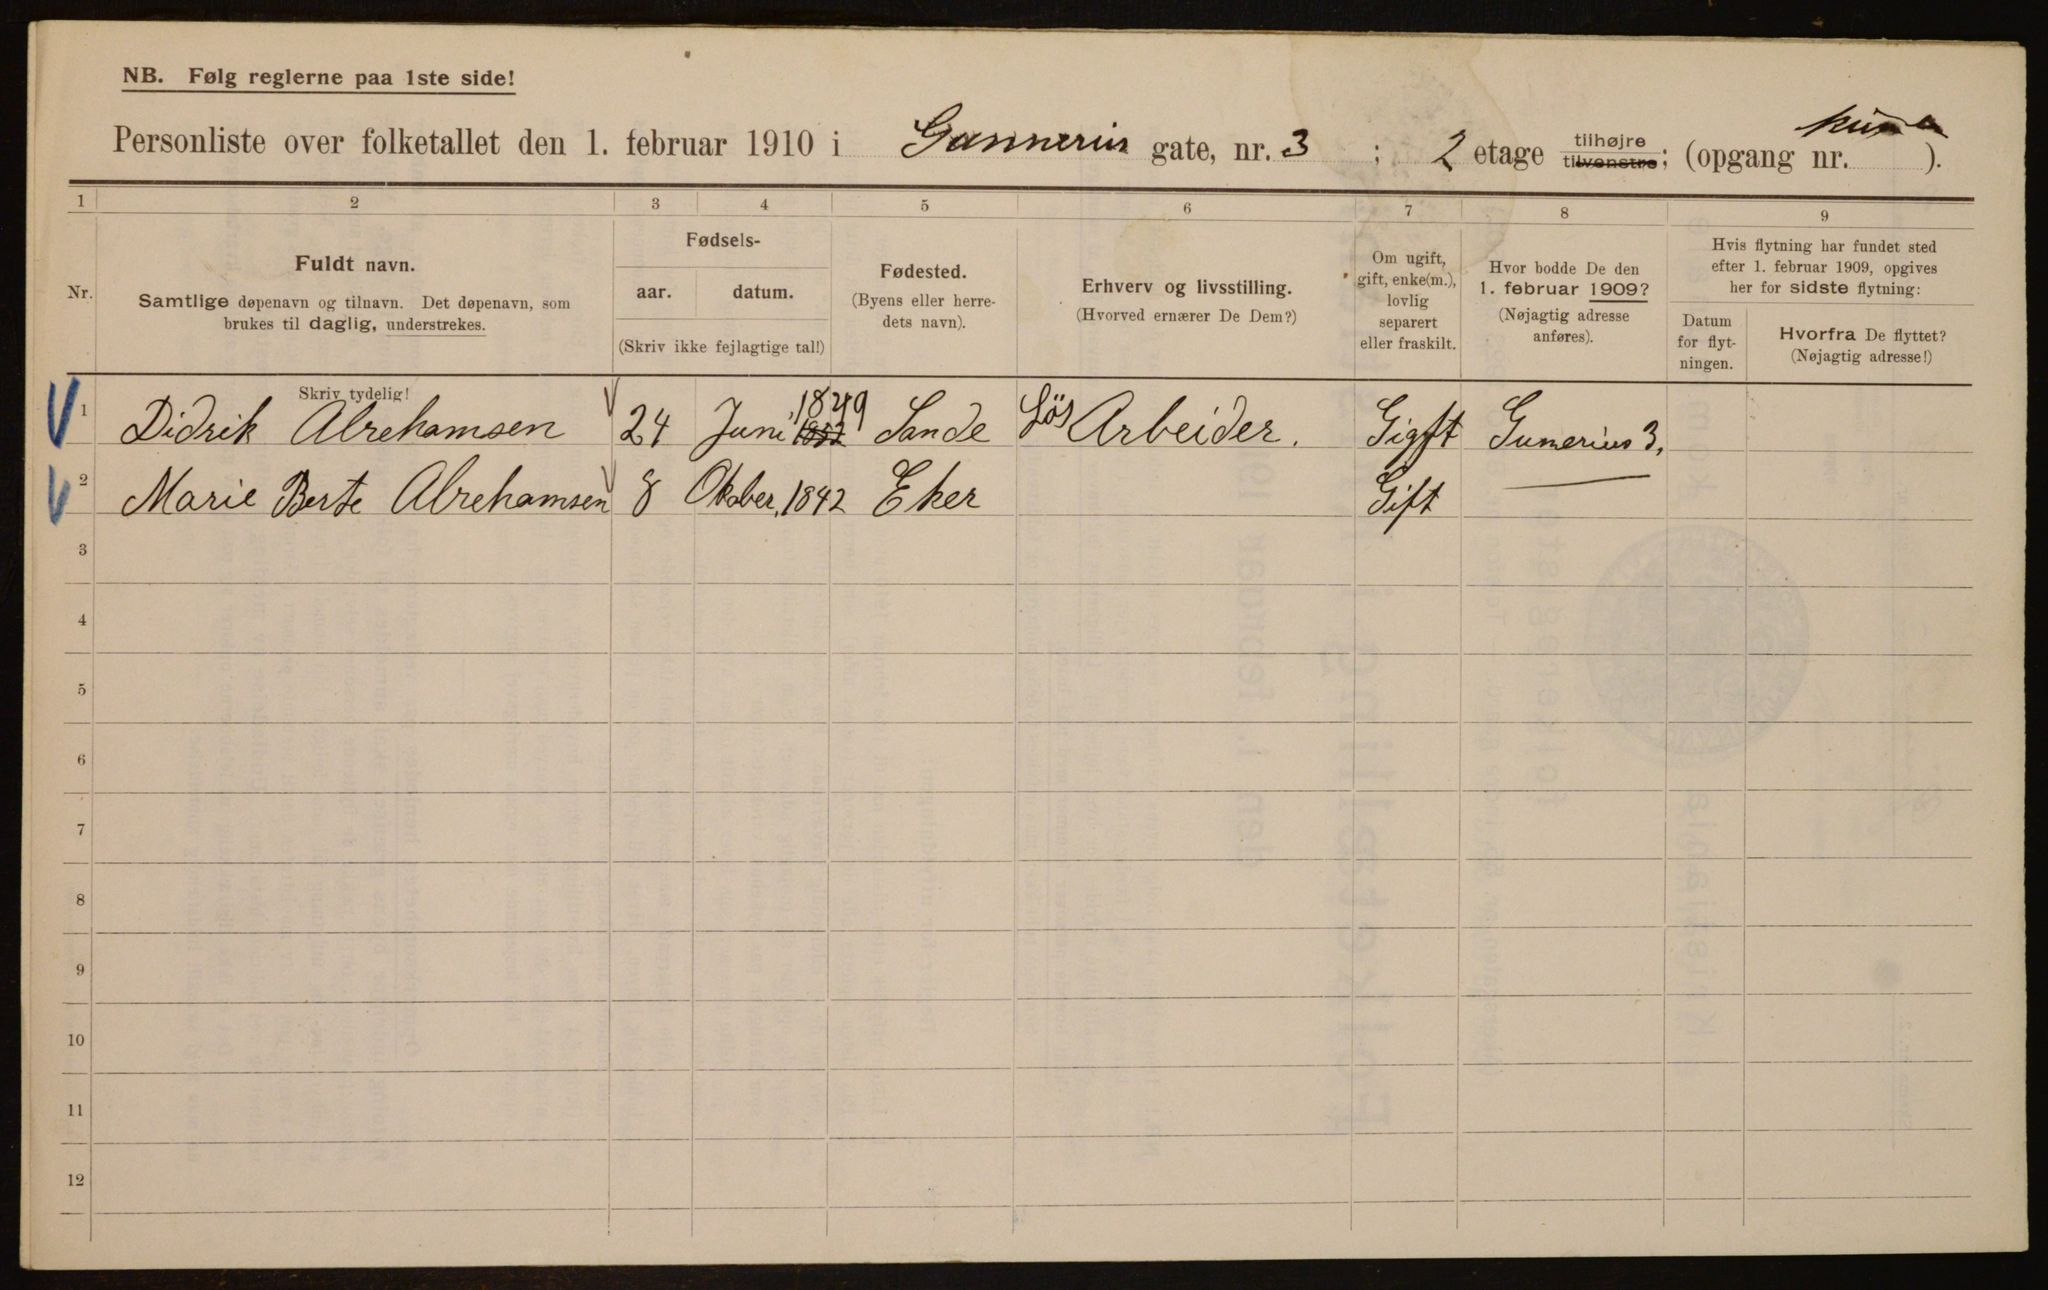 NB. Følg reglerne paa 1ste side!
Personliste over folketallet den 1. februar 1910 i Gannerius gate, nr. 3 ; 2 etage tilhøjre tilvenstre; (opgang nr. ).
1 2 3 4 5 6 7 8 9
Nr.
Fuldt navn.
Samtlige døpenavn og tilnavn. Det døpenavn, som
brukes til daglig, understrekes.
Fødsels-
aar. datum.
(Skriv ikke fejlagtige tal!)
Fødested.
(Byens eller herre-
dets navn).
Erhverv og livsstilling.
(Hvorved ernærer De Dem?)
Om ugift,
gift, enke(m.),
lovlig
separert
eller fraskilt.
Hvor bodde De den
1. februar 1909?
(Nøjagtig adresse
anføres).
Hvis flytning har fundet sted
efter 1. februar 1909, opgives
her for sidste flytning:
Datum
for flyt-
ningen.
Hvorfra De flyttet?
(Nøjagtig adresse!)
Skriv tydelig!
1 Didrik Abrehamsen 24 Juni 1849 Sande Løs Arbeider. Gigft Gumerius 3,
2 Marie Berte Abrehamsen 8 Oktober, 1842 Eker Gift
3
4
5
6
7
8
9
10
11
12